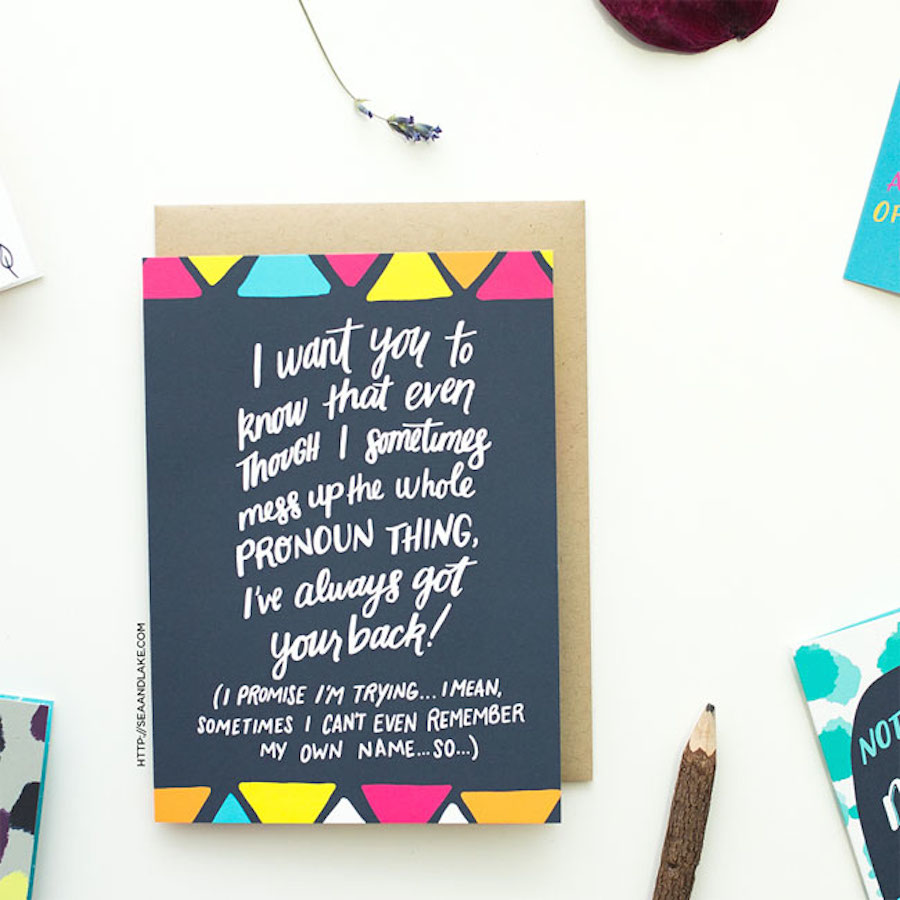 I want you to
know that even
THOUGH I sometimes
mess up the whole
PRONOUN THING,
I've always got
your back!
(I PROMISE I'M TRYING... I MEAN,
SOMETIMES I CAN'T EVEN REMEMBER
MY OWN NAME... SO...)
HTTP://SEAANDLAKE.COM
OF
NOT